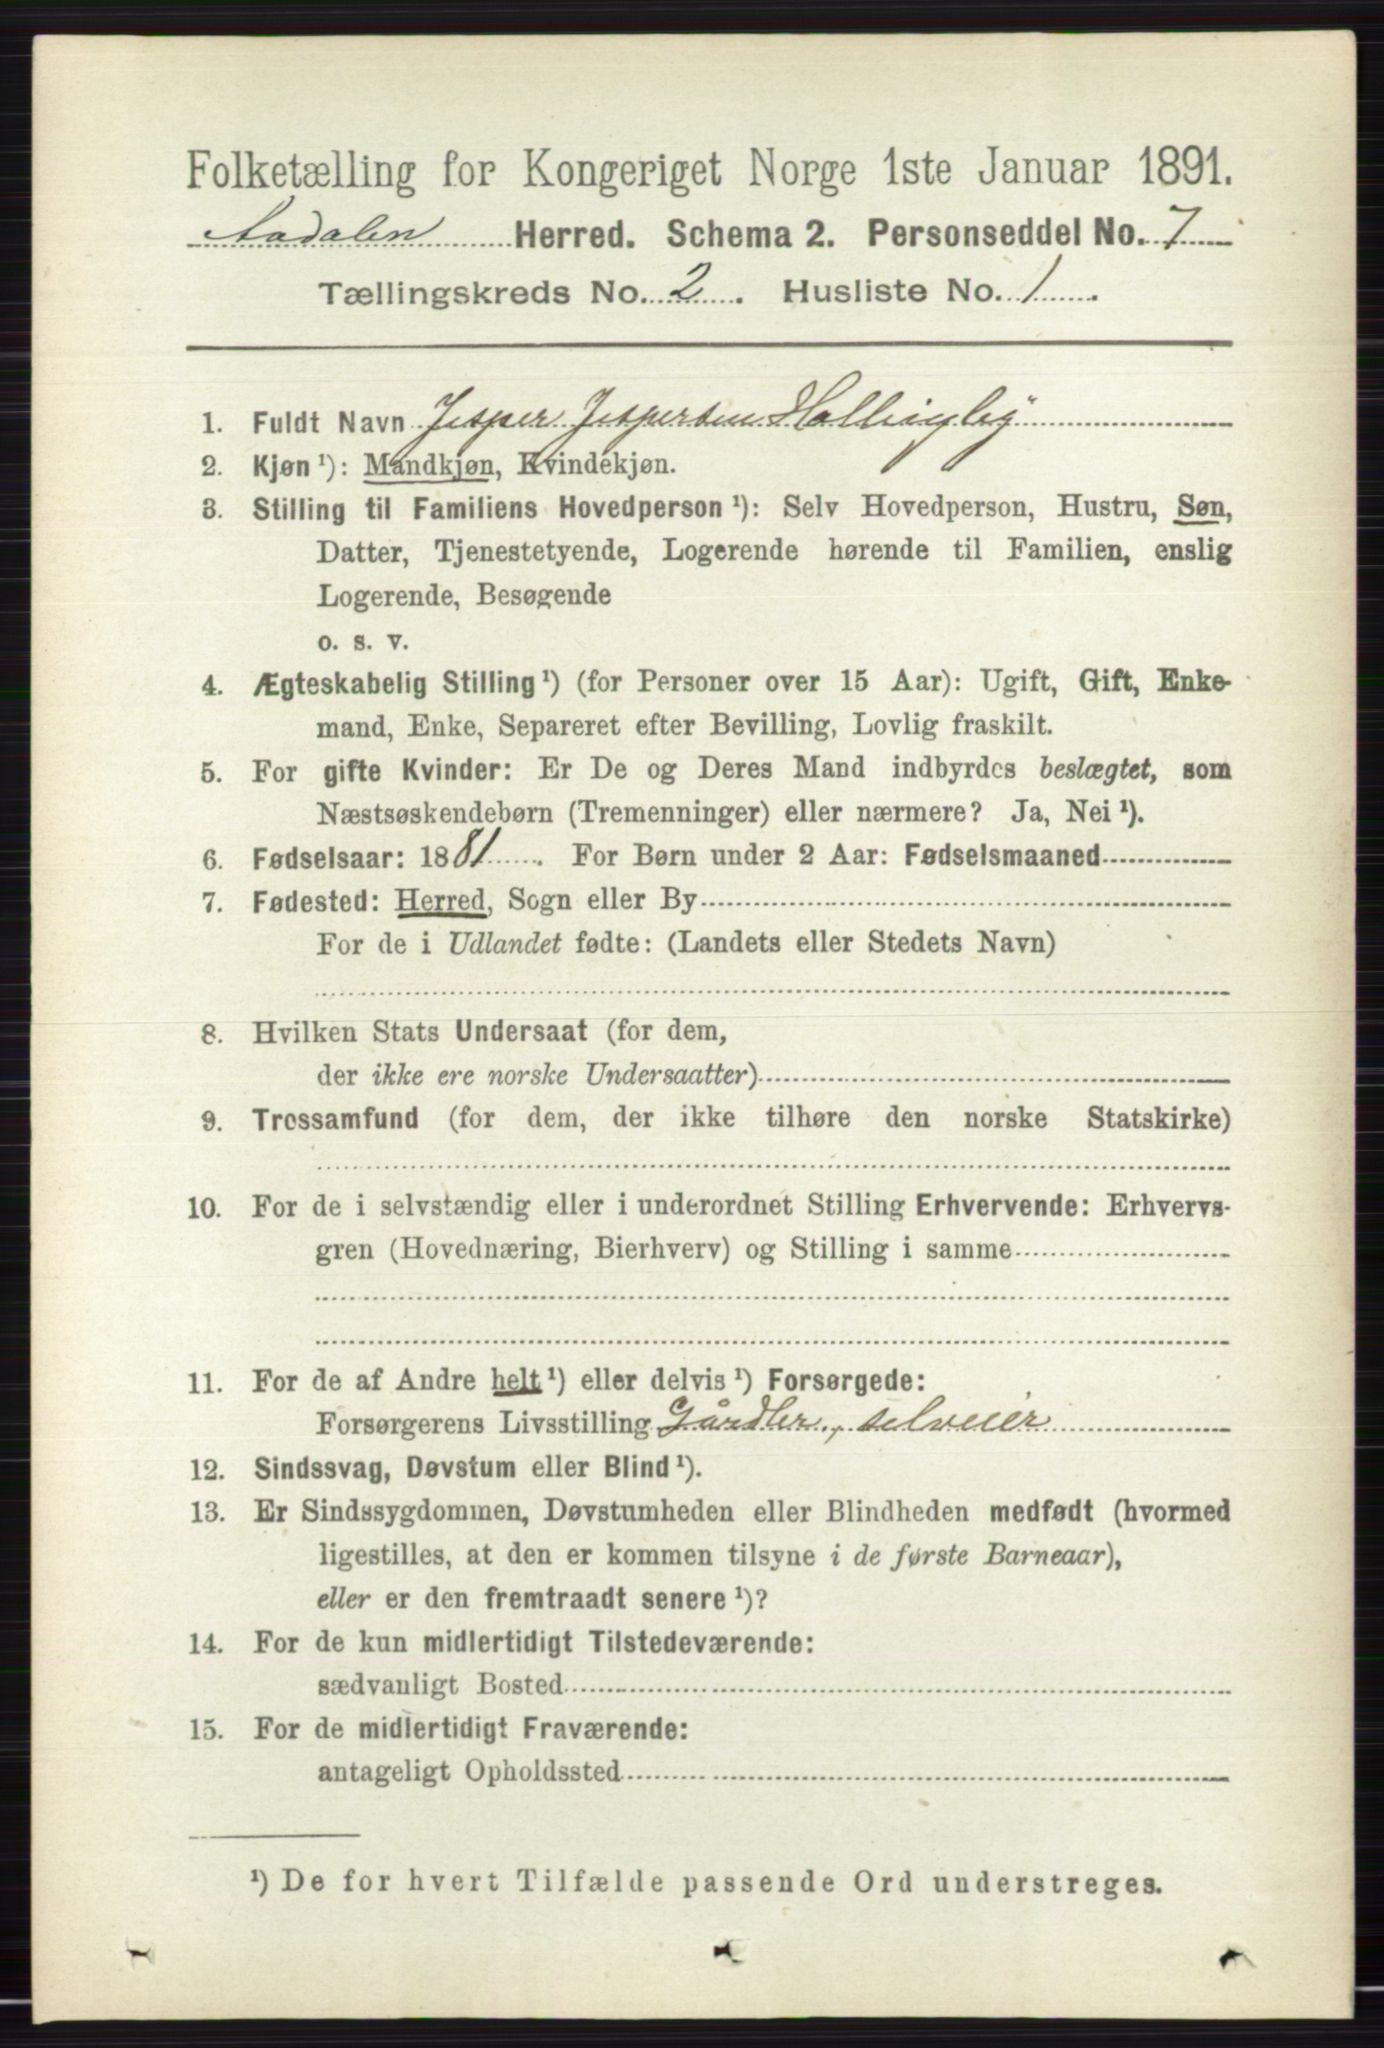 Folketælling for Kongeriget Norge 1ste Januar 1891.
Aadalen Herred. Schema 2. Personseddel No. 7
Tællingskreds No. 2. Husliste No. 1.
1. Fuldt Navn Jesper Jespersen Hallingby
2. Kjøn ¹): Mandkjøn, Kvindekjøn.
3. Stilling til Familiens Hovedperson ¹): Selv Hovedperson, Hustru, Søn,
Datter, Tjenestetyende, Logerende hørende til Familien, enslig
Logerende, Besøgende
o. s. v.
4. Ægteskabelig Stilling ¹) (for Personer over 15 Aar): Ugift, Gift, Enke-
mand, Enke, Separeret efter Bevilling, Lovlig fraskilt.
5. For gifte Kvinder: Er De og Deres Mand indbyrdes beslægtet, som
Næstsøskendebørn (Tremenninger) eller nærmere? Ja, Nei ¹).
6. Fødselsaar: 1881. For Børn under 2 Aar: Fødselsmaaned
7. Fødested: Herred, Sogn eller By
For de i Udlandet fødte: (Landets eller Stedets Navn)
8. Hvilken Stats Undersaat (for dem,
der ikke ere norske Undersaatter)
9. Trossamfund (for dem, der ikke tilhøre den norske Statskirke)
10. For de i selvstændig eller i underordnet Stilling Erhvervende: Erhvervs-
gren (Hovednæring, Bierhverv) og Stilling i samme
11. For de af Andre helt ¹) eller delvis ¹) Forsørgede:
Forsørgerens Livsstilling Gårdbr., selveier
12. Sindssvag, Døvstum eller Blind ¹).
13. Er Sindssygdommen, Døvstumheden eller Blindheden medfødt (hvormed
ligestilles, at den er kommen tilsyne i de første Barneaar),
eller er den fremtraadt senere ¹)?
14. For de kun midlertidigt Tilstedeværende:
sædvanligt Bosted
15. For de midlertidigt Fraværende:
antageligt Opholdssted
¹) De for hvert Tilfælde passende Ord understreges.